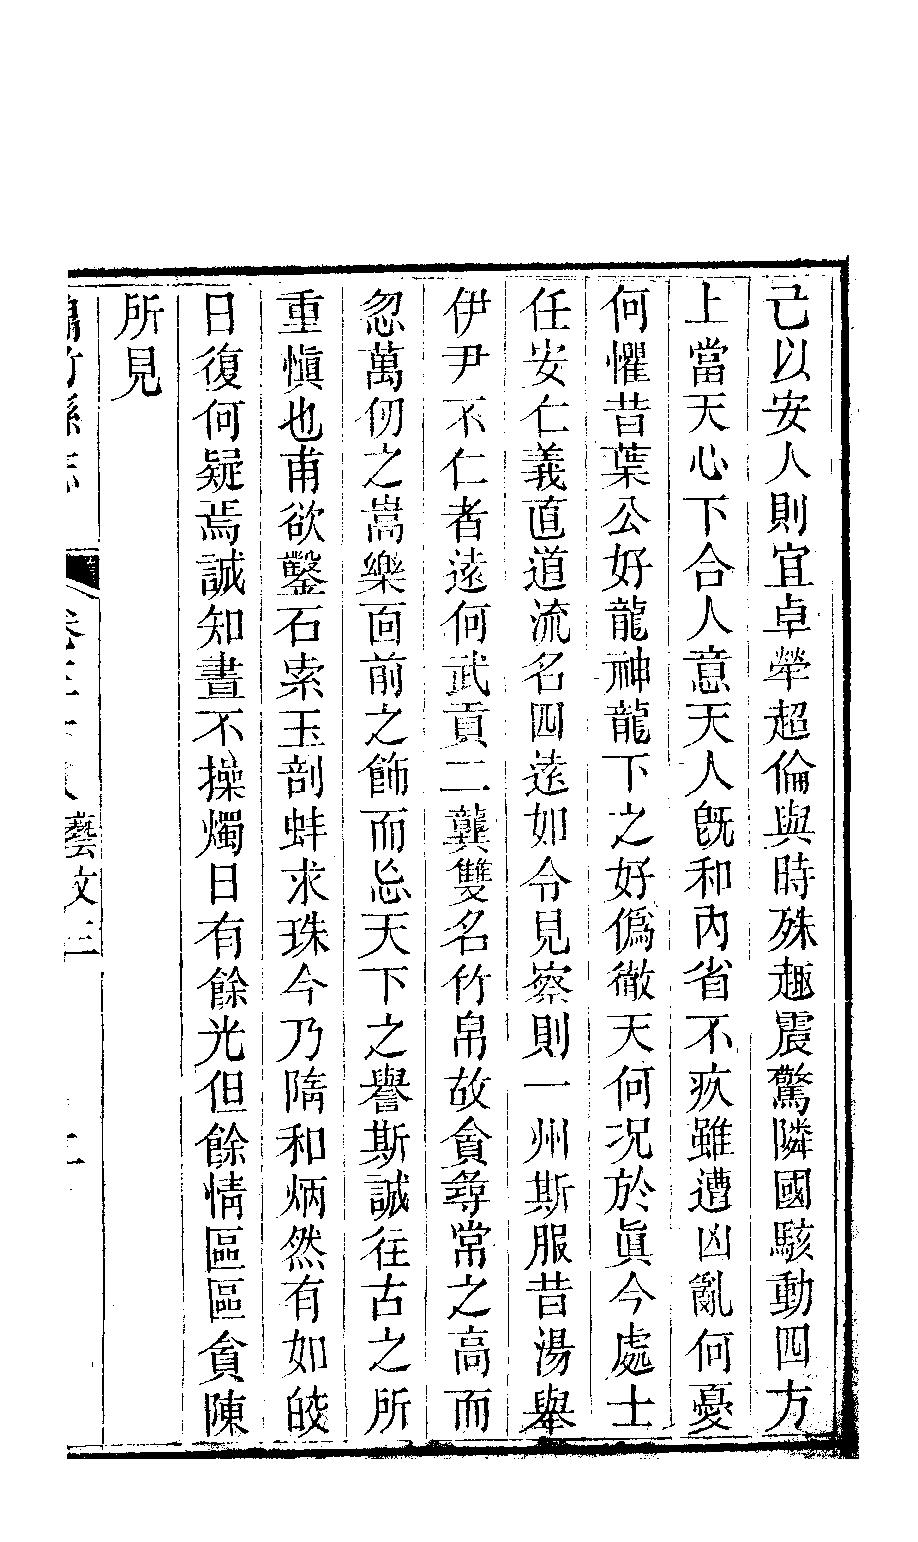 己以安人則宜卓犖超倫與時殊趣震驚隣國駭動四方
上當天心下合人意天人旣和內省不疚雖遭凶亂何憂
何懼昔葉公好龍神龍下之好僞徹天何况於眞今處士
任安仁義直道流名四遠如令見察則一州斯服昔湯舉
伊尹不仁者遠何武貢二龔雙名竹帛故貪尋常之高而
忽萬仞之嵩樂面前之飾而忘天下之譽斯誠往古之所
重愼也甫欲鑿石索玉剖蚌求珠今乃隋和炳然有如皎
日復何疑焉誠知晝不操燭日有餘光但餘情區區貪陳
所見
竹縣志
卷三十八藝文三
二